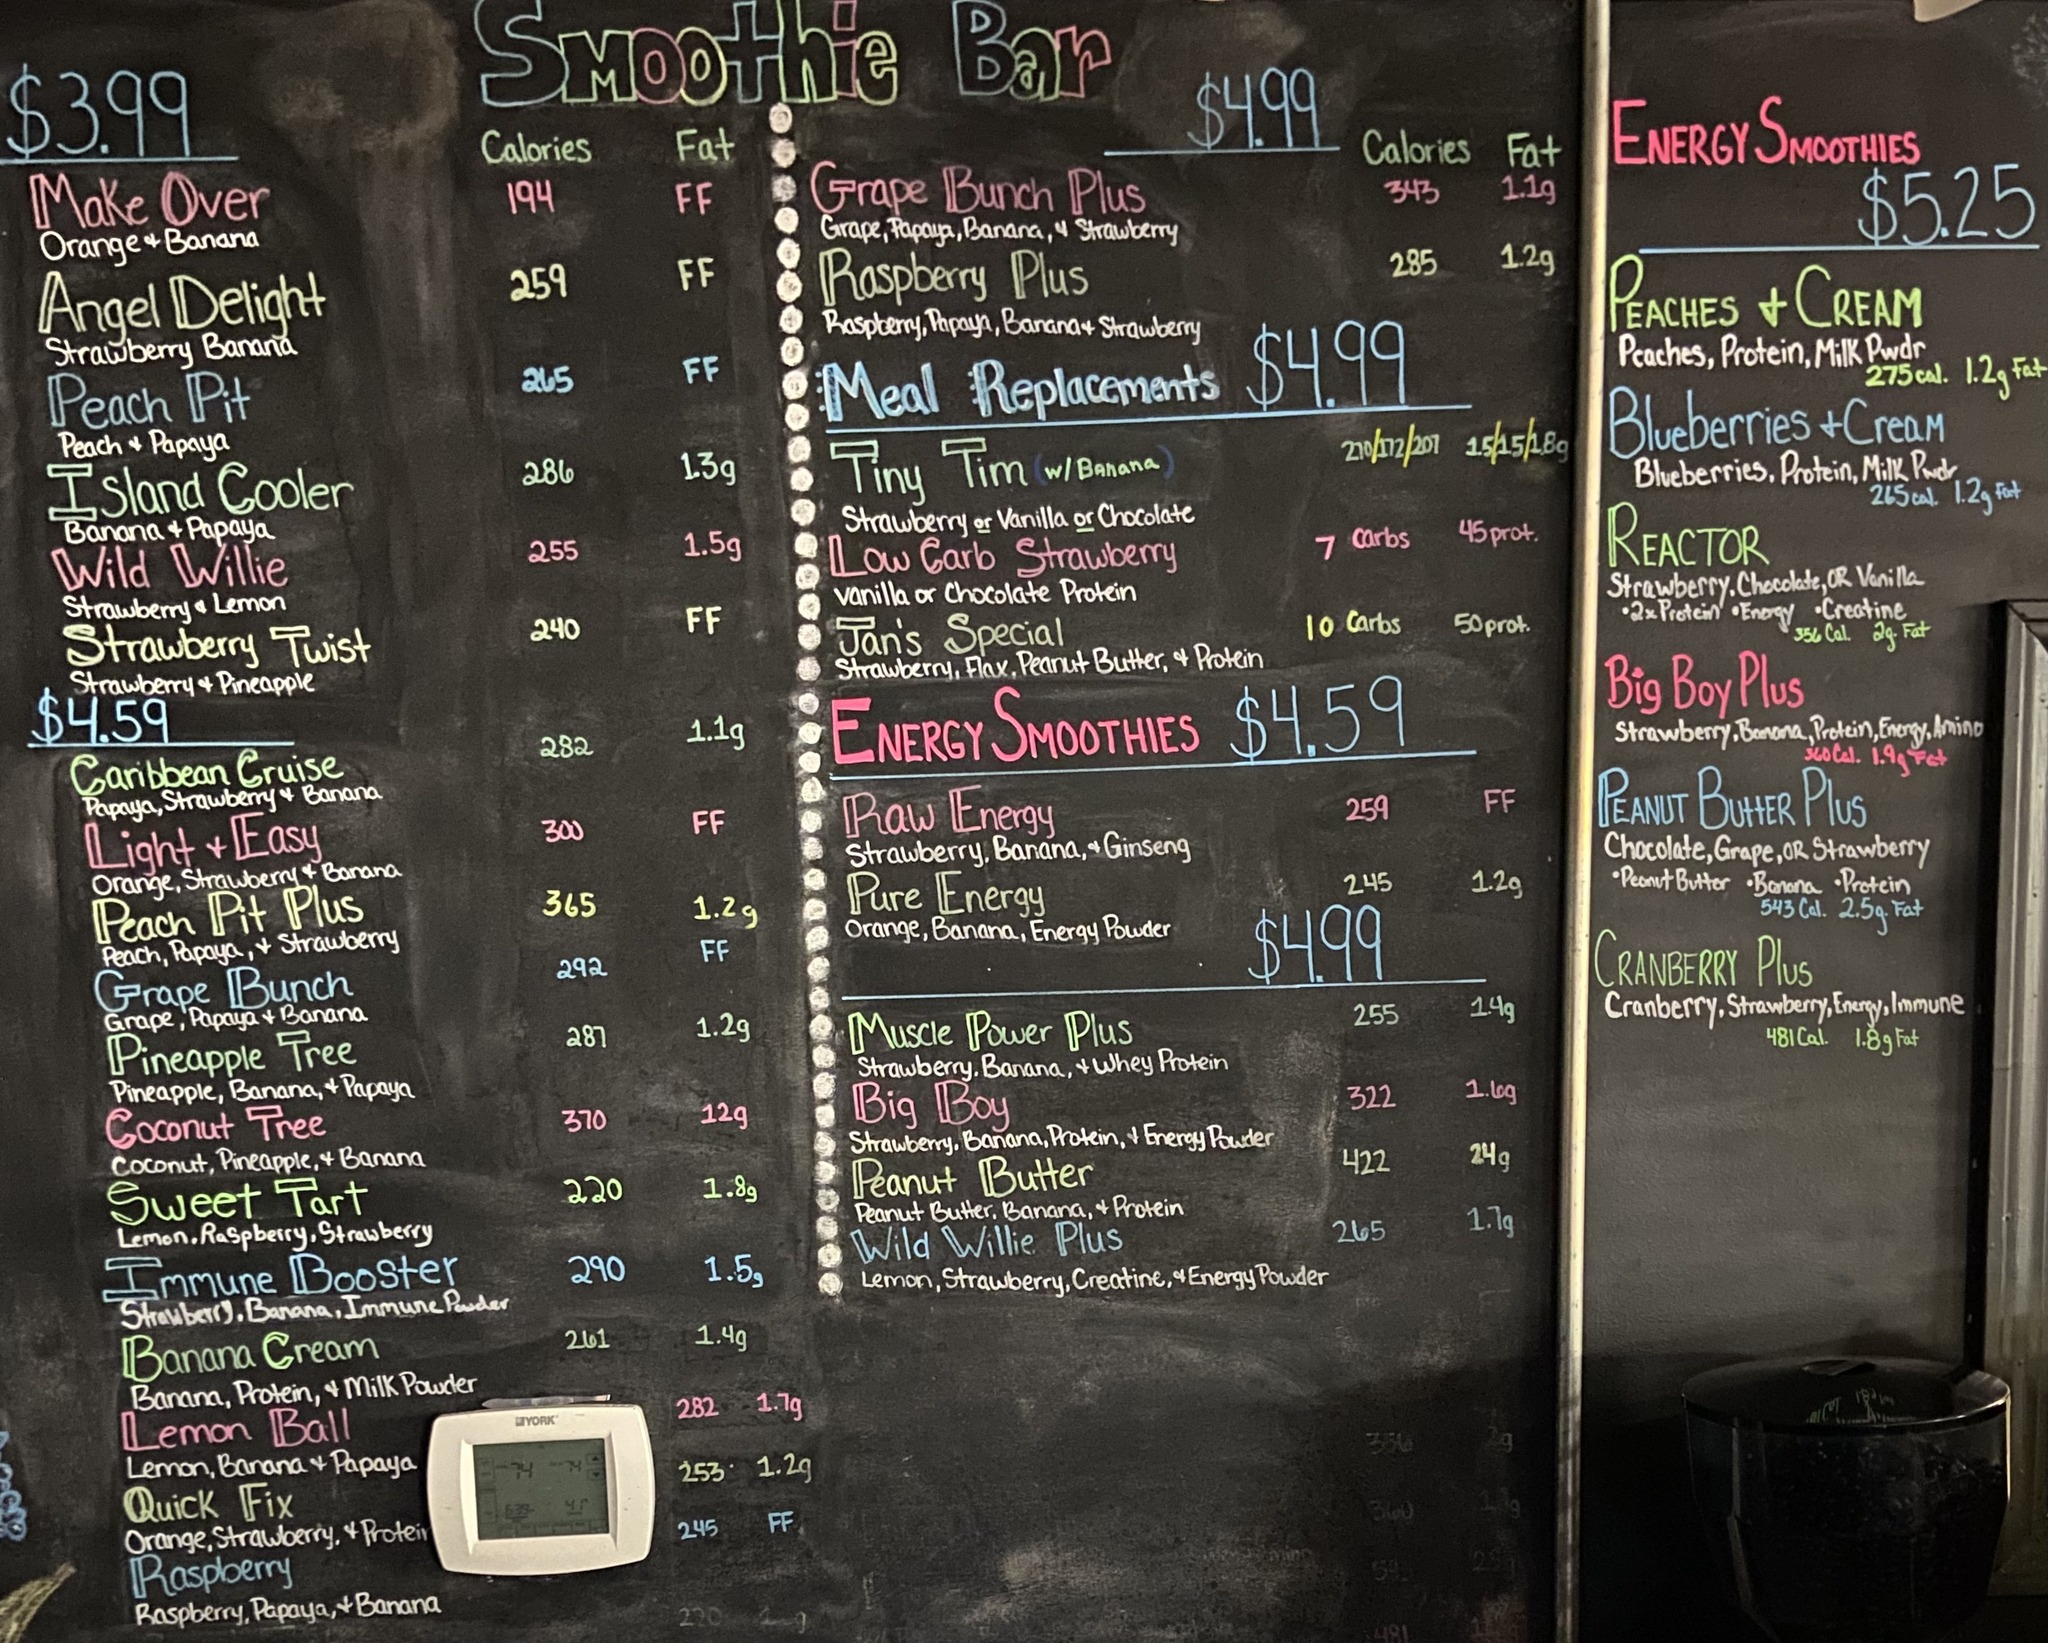 Smoothie Bar
$3.99
Calories Fat
Make Over 194 FF
Orange + Banana
Angel Delight 259 FF
Strawberry Banana
Peach Pit 265 FF
Peach + Papaya
Island Cooler 286 13g
Banana + Papaya
Wild Willie 255 1.5g
Strawberry & Lemon
Strawberry Twist 240 FF
Strawberry + Pineapple
$4.59
Caribbean Cruise 282 1.1g
Papaya, Strawberry + Banana
Light + Easy 300 FF
Orange, Strawberry + Banana
Peach Pit Plus 365 1.2g
Peach, Papaya, + Strawberry
Grape Bunch 292 FF
Grape, Papaya + Banana
Pineapple Tree 287 1.2g
Pineapple, Banana, + Papaya
Coconut Tree 370 12g
Coconut, Pineapple, + Banana
Sweet Tart 220 1.8g
Lemon, Raspberry, Strawberry
Immune Booster 290 1.5g
Strawberry, Banana, Immune Powder
Banana Cream 261 1.4g
Banana, Protein, + Milk Powder
Lemon Ball 282 1.7g
Lemon, Banana + Papaya
Quick Fix 253 1.2g
Orange, Strawberry, + Protein
Raspberry 245 FF
Raspberry, Papaya, + Banana
YORK
74 74
$4.99
Calories Fat
Grape Bunch Plus 343 1.1g
Grape, Papaya, Banana, & Strawberry
Raspberry Plus 285 1.2g
Raspberry, Papaya, Banana + Strawberry
Meal Replacements $4.99
Tiny Tim (w/Banana) 270/172/207 1.5/1.5/1.8g
Strawberry or Vanilla or Chocolate
Low Carb Strawberry 7 Carbs 45 prot.
Vanilla or Chocolate Protein
Jan's Special 10 Carbs 50 prot.
Strawberry, Flax, Peanut Butter, + Protein
Energy Smoothies $4.59
Raw Energy 259 FF
Strawberry, Banana, + Ginseng
Pure Energy 245 1.2g
Orange, Banana, Energy Powder
$4.99
Muscle Power Plus 255 1.4g
Strawberry, Banana, + Whey Protein
Big Boy 322 1.6g
Strawberry, Banana, Protein, + Energy Powder
Peanut Butter 422 24g
Peanut Butter, Banana, + Protein
Wild Willie Plus 265 1.7g
Lemon, Strawberry, Creatine, & Energy Powder
356 2g
360
481
Energy Smoothies
$5.25
Peaches + Cream
Peaches, Protein, Milk Pwdr
275 cal. 1.2g Fat
Blueberries + Cream
Blueberries, Protein, Milk Pwdr
265 cal. 1.2g Fat
Reactor
Strawberry, Chocolate, OR Vanilla
•2x Protein •Energy •Creatine
356 Cal. 2g. Fat
Big Boy Plus
Strawberry, Banana, Protein, Energy, Amino
360 Cal. 1.9g Fat
Peanut Butter Plus
Chocolate, Grape, OR Strawberry
•Peanut Butter •Banana •Protein
543 Cal. 2.5g. Fat
Cranberry Plus
Cranberry, Strawberry, Energy, Immune
481 Cal. 1.8g Fat